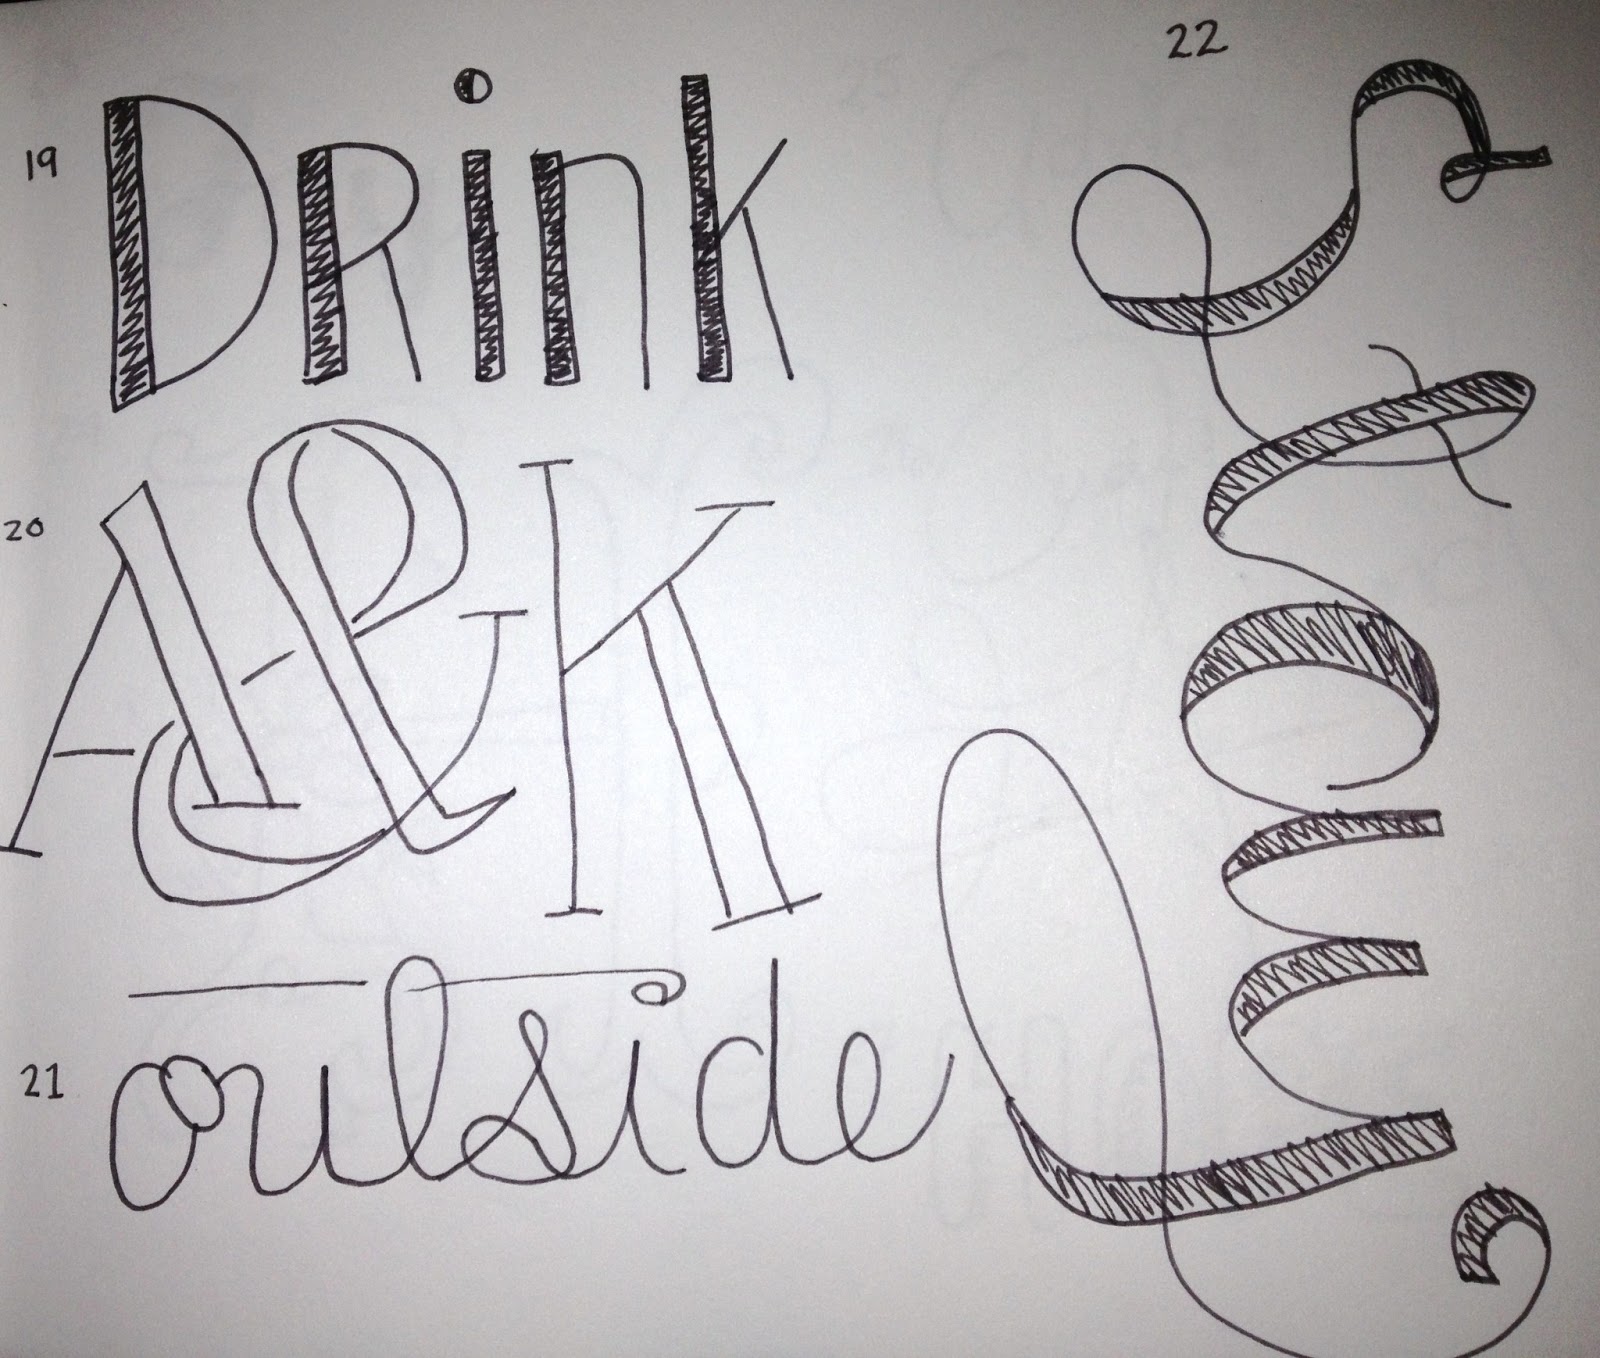 19 Drink
20 A&K
21 outside
22